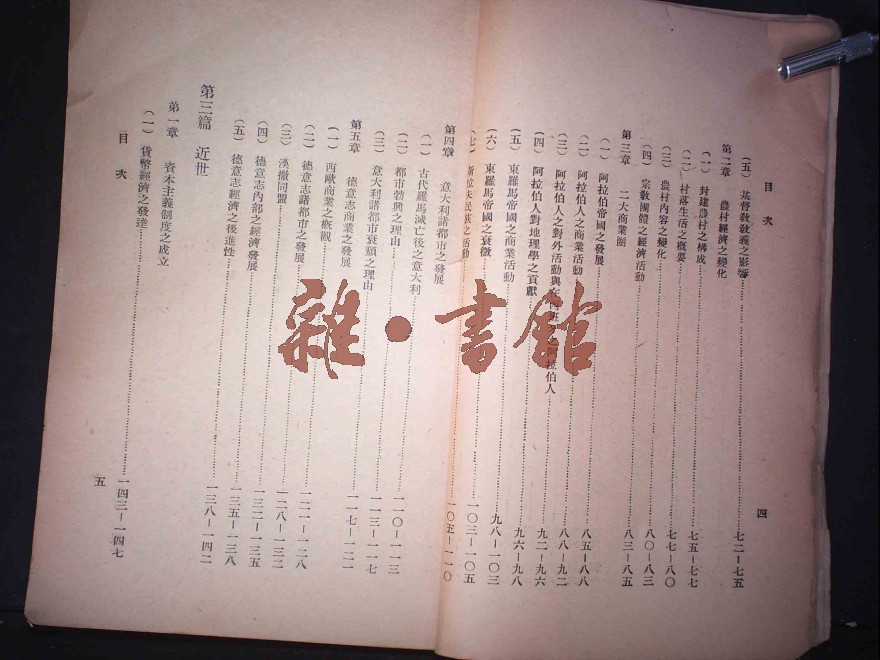 目次
四
（五） 基督敎敎義之影響……七二－七五
第二章 農村經濟之變化
（一） 封建農村之構成……七五－七七
（二） 村落生活之概要
（三） 農村內容之變化……七七－八〇
（四） 宗敎團體之經濟活動……八〇－八三
第三章 二大商業圈……八三－八五
（一） 阿拉伯帝國之發展
（二） 阿拉伯人之商業活動……八五－八八
（三） 阿拉伯人之對外活動與在 之阿拉伯人……八八－九二
（四） 阿拉伯人對地理學之貢獻……九二－九六
（五） 東羅馬帝國之商業活動……九六－九八
（六） 東羅馬帝國之衰微……九八－一〇三
（七） 斯拉夫民族之活動……一〇三－一〇五
第四章 意大利諸都市之發展
（一） 古代羅馬滅亡後之意大利……一〇五－一一〇
（二） 都市勃興之理由……一一〇－一一三
（三） 意大利諸都市衰頹之理由……一一三－一一七
第五章 德意志商業之發展
（一） 西歐商業之概觀……一一七－一二一
（二） 德意志諸都市之發展……一二一－一二八
（三） 漢撒同盟……一二八－一三二
（四） 德意志內部之經濟發展……一三二－一三五
（五） 德意志經濟之後進性……一三五－一三八
第三篇 近世……一三八－一四二
第一章 資本主義制度之成立
（一） 貨幣經濟之發達……一四三－一四七
目次
五
雜•書館